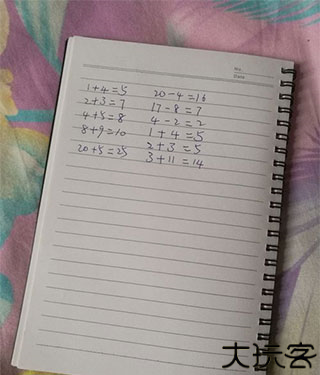 No.
Date
1+4=5 20-4=16
2+3=7 17-8=7
4+5=8 4-2=2
8+9=10 1+4=5
20+5=25 2+3=5
3+11=14
大玩客